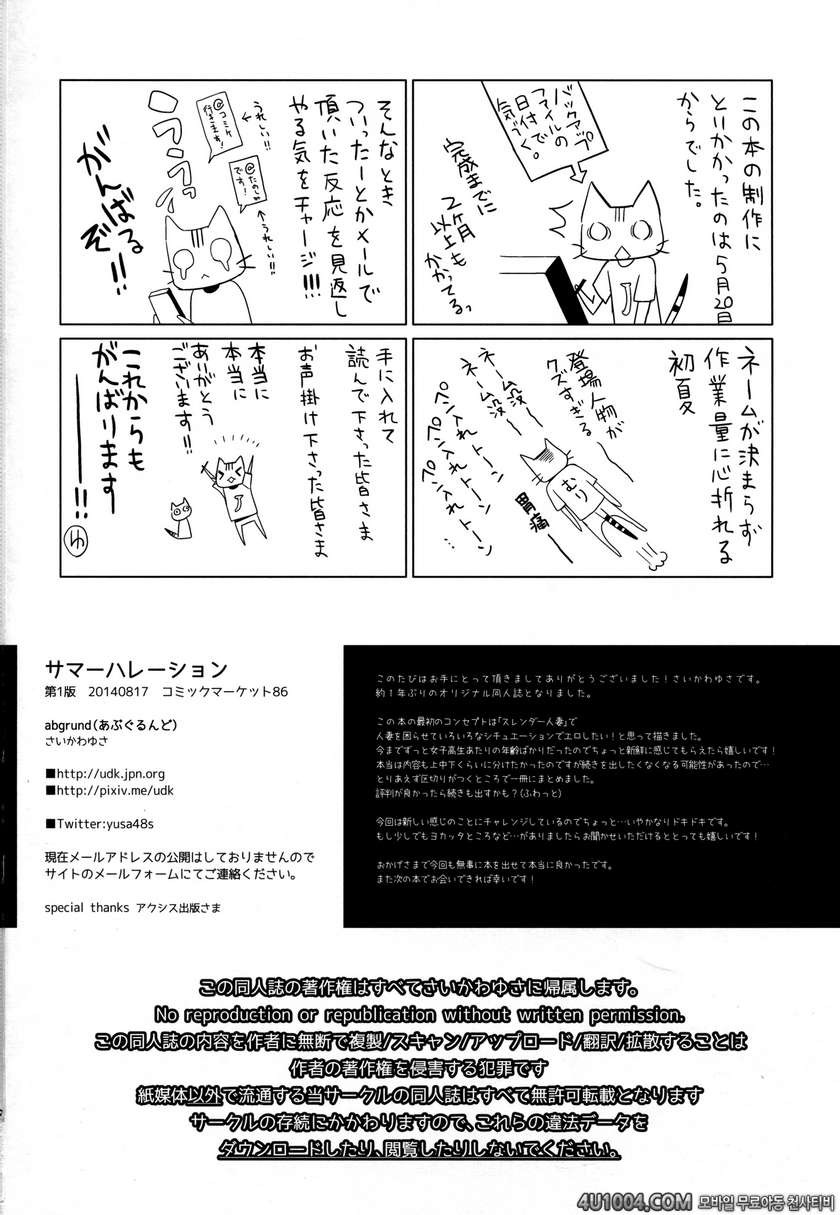 この本の制作に
とりかかったのは5月20日
からでした。
バックアップ
ファイルの
日付で
気づく。
完成までに
2ヶ月
以上も
かかってる。
ネームが決まらず
作業量に心折れる
初夏
登場人物が
クズすぎる
ネーム没ー
ネーム没ー
ペン入れトーン
ペン入れトーン
ペン入れトーン
…
むり
胃痛ー
そんなとき
ついったーとかメールで
頂いた反応を見返し
やる気をチャージ!!!
うれしい!!
@コミケ
行きます!
@たのしみ
です!
うれしい!!
がんばる
ぞ!!
手に入れて
読んで下さった皆さま
お声掛け下さった皆さま
本当に
本当に
ありがとう
ございます!!
これからも
がんばります
――!!
ゆ
サマーハレーション
第1版 20140817 コミックマーケット86
abgrund(あぶぐるんど)
さいかわゆさ
■http://udk.jpn.org
■http://pixiv.me/udk
■Twitter:yusa48s
現在メールアドレスの公開はしておりませんので
サイトのメールフォームにてご連絡ください。
special thanks アクシス出版さま
このたびはお手にとって頂きましてありがとうございました!さいかわゆさです。
約1年ぶりのオリジナル同人誌となりました。
この本の最初のコンセプトは「スレンダー人妻」で
人妻を困らせていろいろなシチュエーションでエロしたい!と思って描きました。
今までずっと女子高生あたりの年齢ばかりだったのでちょっと新鮮に感じてもらえたら嬉しいです!
本当は内容も上中下くらいに分けたかったのですが続きを出したくなくなる可能性があったので…
とりあえず区切りがつくところで一冊にまとめました。
評判が良かったら続きも出すかも?(ふわっと)
今回は新しい感じのことにチャレンジしているのでちょっと…いやかなりドキドキです。
もし少しでもヨカッタところなど…がありましたらお聞かせいただけるととっても嬉しいです!
おかげさまで今回も無事に本を出せて本当に良かったです。
また次の本でお会いできれば幸いです!
この同人誌の著作権はすべてさいかわゆさに帰属します。
No reproduction or republication without written permission.
この同人誌の内容を作者に無断で複製/スキャン/アップロード/翻訳/拡散することは
作者の著作権を侵害する犯罪です
紙媒体以外で流通する当サークルの同人誌はすべて無許可転載となります
サークルの存続にかかわりますので、これらの違法データを
ダウンロードしたり、閲覧したりしないでください。
4U1004.COM 모바일 무료야동 천사티비